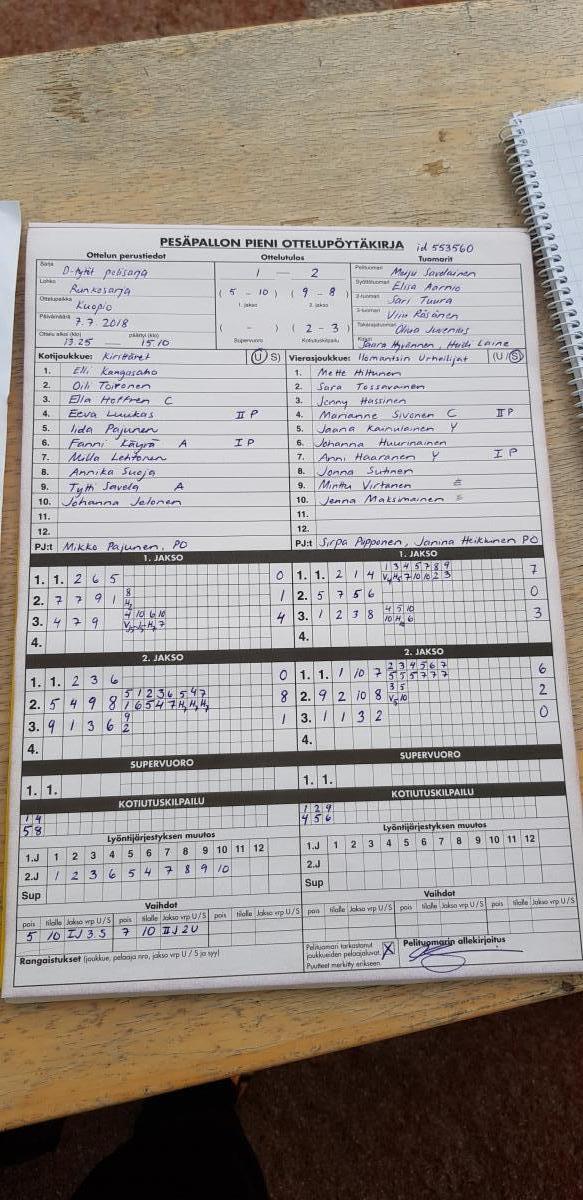 PESÄPALLON PIENI OTTELUPÖYTÄKIRJA id 553560
Ottelun perustiedot Ottelutulos Tuomarit
Sarja D-tytöt pelisarja
Lohko Runkosarja
Ottelupaikka Kuopio
Päivämäärä 7.7.2018
Ottelu alkoi (klo) 13.25 päättyi (klo) 15.10
1 — 2
( 5 - 10 ) ( 9 - 8 )
1. jakso 2. jakso
( - ) ( 2 - 3 )
Supervuoro Kotiutuskilpailu
Pelituomari Merju Savolainen
Syöttötuomari Elisa Aarnio
2-tuomari Sari Tuura
3-tuomari Viivi Räsänen
Takarajatuomari Juvenius
Kirjuri Saara Hyvönnen, Heidi Laine
Kotijoukkue: Kirittäret (U/S)
1. Elli Kangasaho
2. Oili Toivonen
3. Ella Hoffren C
4. Eeva Luukas II P
5. Iida Pajunen
6. Fanni Käyrä A I P
7. Milla Lehtonen
8. Annika Suoja
9. Tytti Savela A
10. Johanna Jelonen
11.
12.
PJ:t Mikko Pajunen, PO
Vierasjoukkue: Ilomantsin Urheilijat (U/S)
1. Mette Hiltunen
2. Sara Tossavainen
3. Jenny Hassinen
4. Marianne Sivonen C II P
5. Jaana Kainulainen Y
6. Johanna Huurinainen
7. Anni Haaranen Y I P
8. Jonna Sutinen
9. Minttu Virtanen
10. Jenna Maksimainen
11.
12.
PJ:t Sirpa Piipponen, Janina Heikkinen PO
1. JAKSO
1. 1. 2 6 5 0
2. 7 7 9 1 8 1
H2
3. 4 7 9 4 10 6 10 4
4.
1. JAKSO
1. 1. 2 1 4 1 3 4 5 7 8 9 7
V4 H5 7 10 10 2 3
2. 5 7 5 6 0
3. 1 2 3 8 4 5 10 3
10 H4 6
4.
2. JAKSO
1. 1. 2 3 6 0
2. 5 4 9 8 5 1 2 3 6 5 4 7 8
1 6 5 4 7 H1 H1 H1
3. 9 1 3 6 9 1
2
4.
2. JAKSO
1. 1. 1 10 7 2 3 4 5 6 7 6
5 5 5 7 7 7
2. 9 2 10 8 3 5 2
V3 10
3. 1 1 3 2 0
4.
SUPERVUORO
1. 1.
SUPERVUORO
1. 1.
KOTIUTUSKILPAILU
1 4
5 8
KOTIUTUSKILPAILU
1 2 9
4 5 6
Lyöntijärjestyksen muutos
1.J 1 2 3 4 5 6 7 8 9 10 11 12
2.J 1 2 3 6 5 4 7 8 9 10
Sup
Lyöntijärjestyksen muutos
1.J 1 2 3 4 5 6 7 8 9 10 11 12
2.J
Sup
Vaihdot
pois tilalle Jakso vrp U/S pois tilalle Jakso vrp U/S pois tilalle Jakso vrp U/S
5 10 IJ 3.S 7 10 IIJ 2U
Vaihdot
pois tilalle Jakso vrp U/S pois tilalle Jakso vrp U/S pois tilalle Jakso vrp U/S
Rangaistukset (joukkue, pelaaja nro, jakso vrp U / S ja syy)
Pelituomari tarkastanut
joukkueiden pelaajaluvat. X
Puutteet merkitty erikseen.
Pelituomarin allekirjoitus